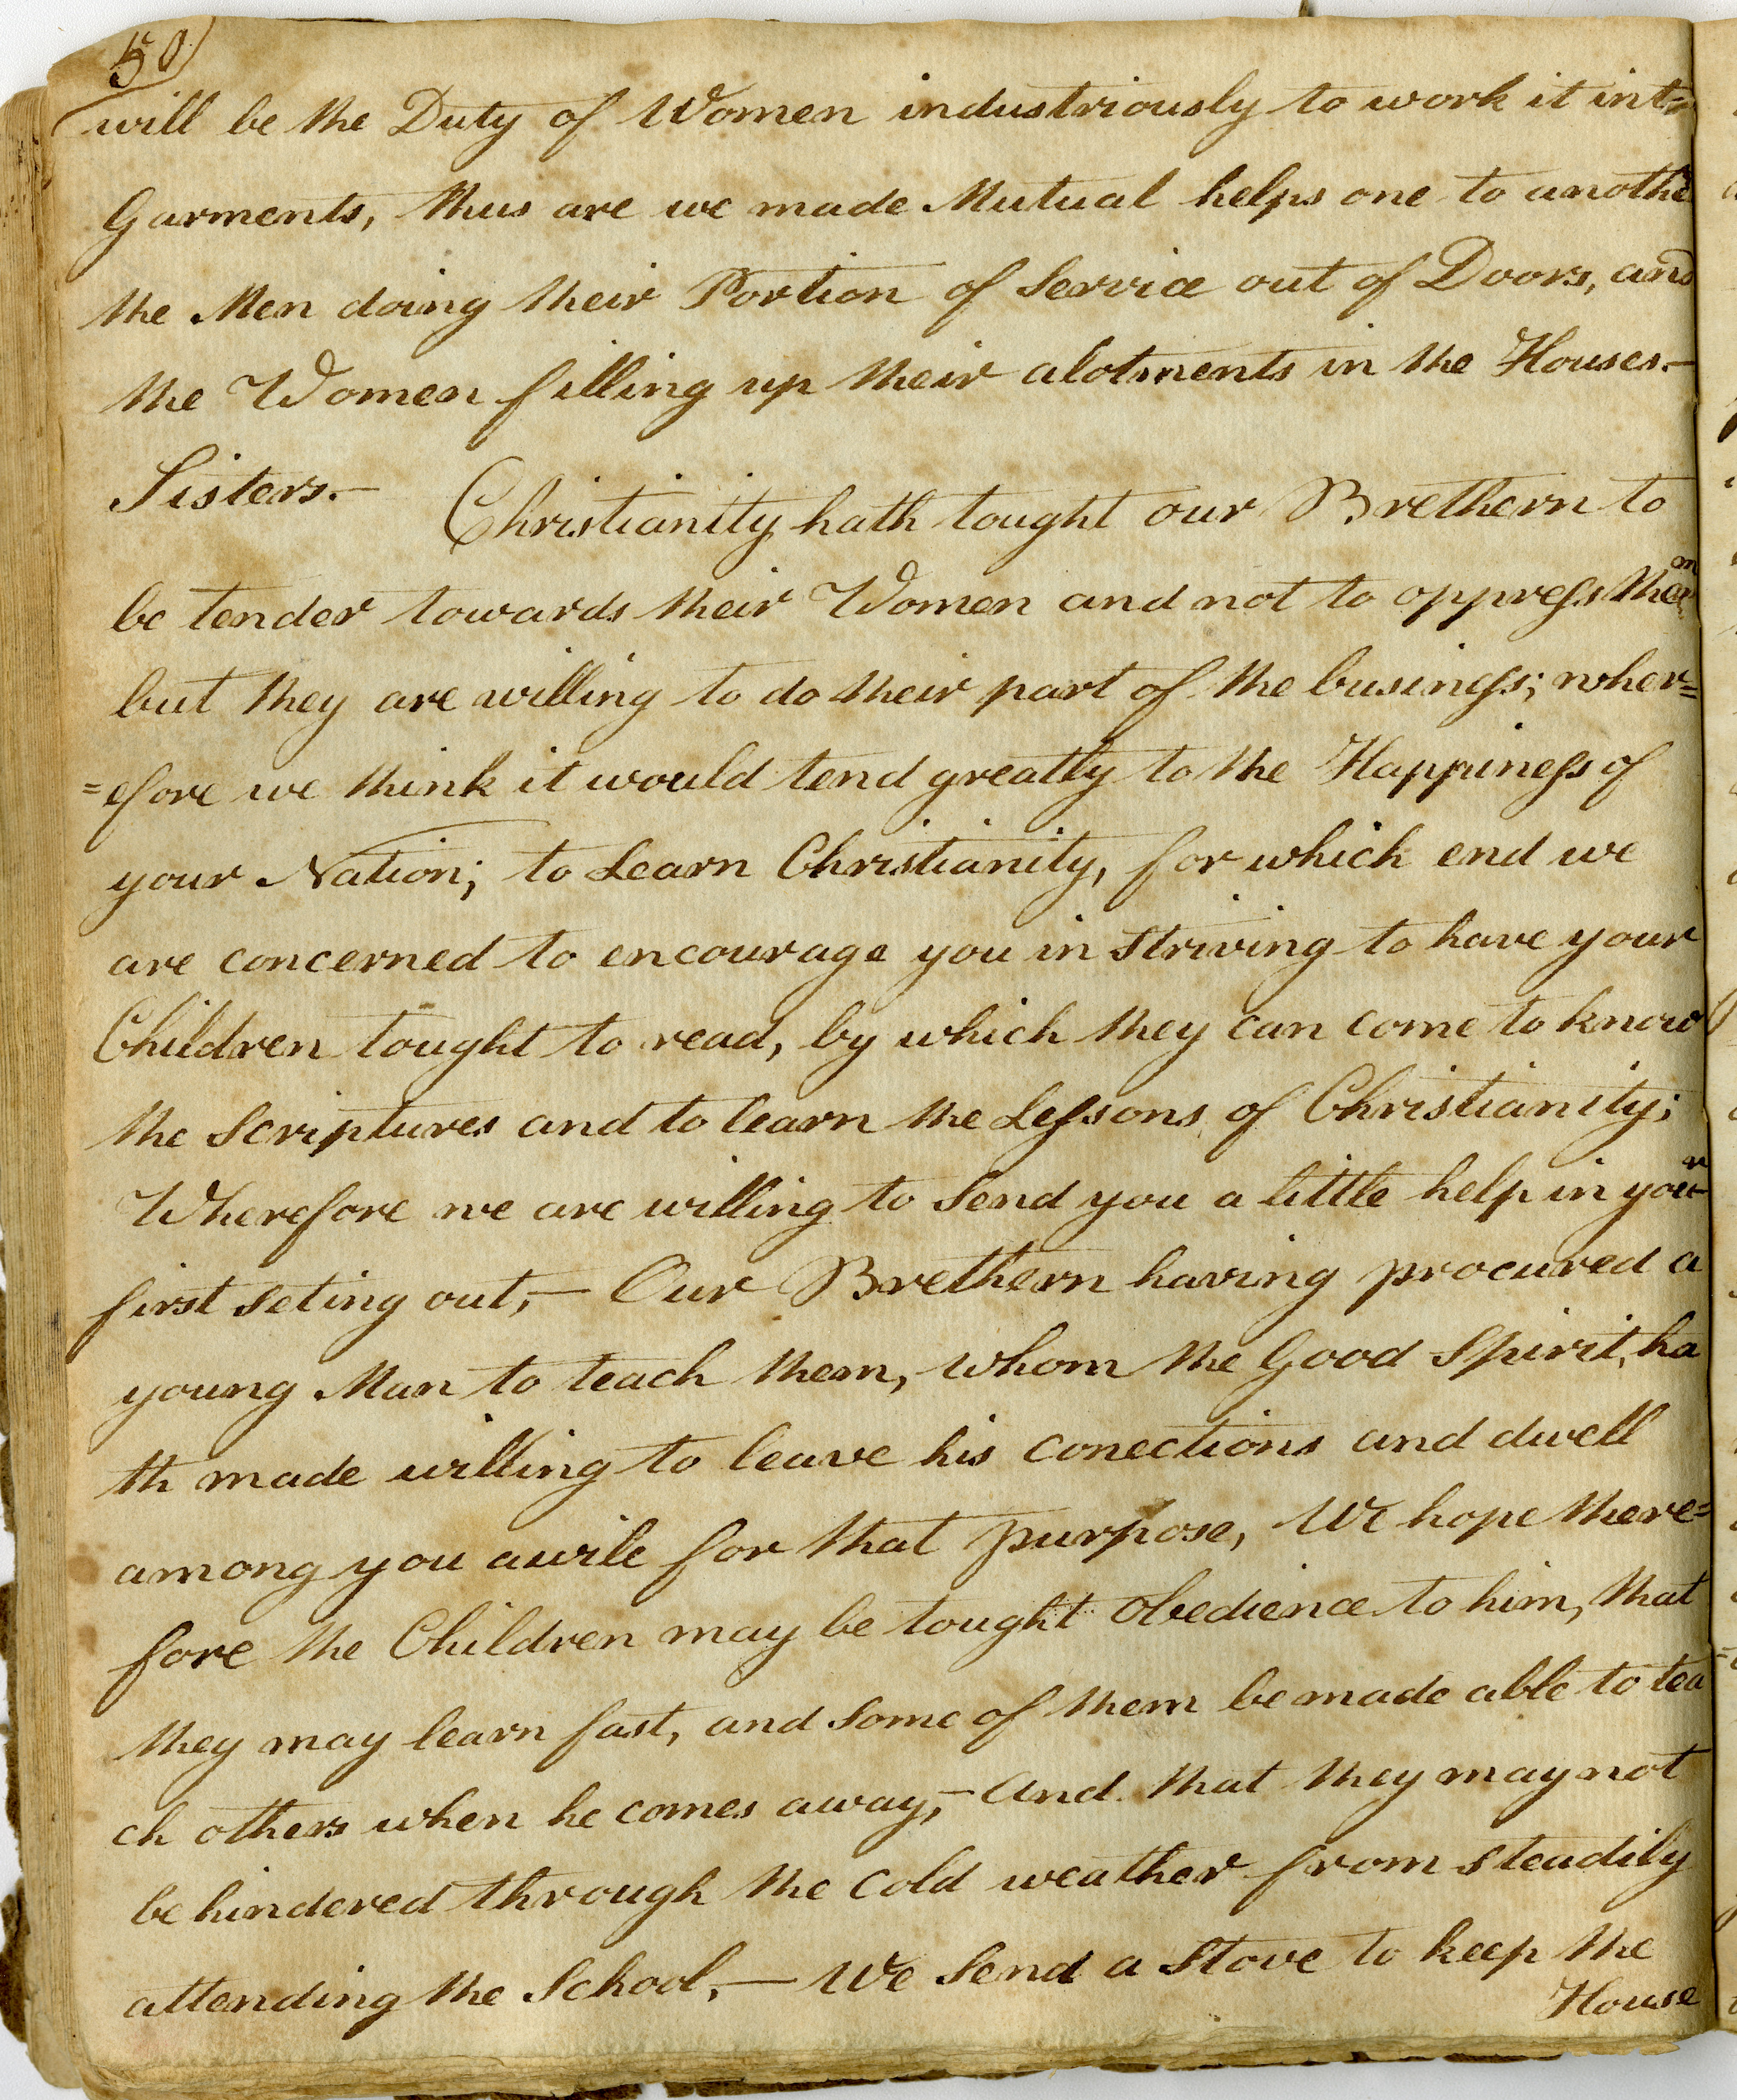 50
will be the Duty of Women industriously to work it into
Garments, thus are we made Mutual helps one to anothe
the Men doing their Portion of Service out of Doors, and
the Women filling up their alotments in the Houses.—
Sisters.— Christianity hath tought our Brethern to
be tender towards their Women and not to oppress them
but they are willing to do their part of the business; wher=
=efore we think it would tend greatly to the Happiness of
your Nation; to Learn Christianity, for which end we
are concerned to encourage you in striving to have your
Children tought to read, by which they can come to know
the Scriptures and to learn the Lessons of Christianity;
Wherefore we are willing to Send you a little help in your
first Seting out,— Our Brethern having procured a
young Man to teach them, whom the Good Spirit, ha
th made willing to leave his conections and dwell
among you awile for that purpose, We hope there=
fore the Children may be tought obedience to him, that
they may learn fast, and Some of them be made able to tea
ch others when he comes away,— and that they may not
be hindered through the cold weather from steadily
attending the School,— We Send a Stove to keep the
House